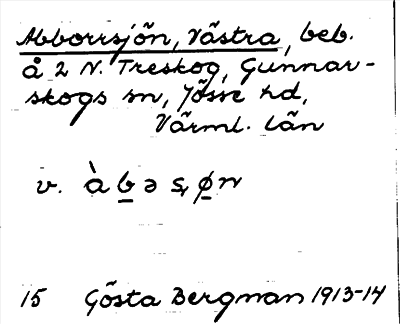 Abborrsjön, Västra, beb.
å 2 N. Treskog, Gunnar-
skogs sn, Jösse hd,
Värml. län
v. àbəşøn
15 Gösta Bergman 1913-14